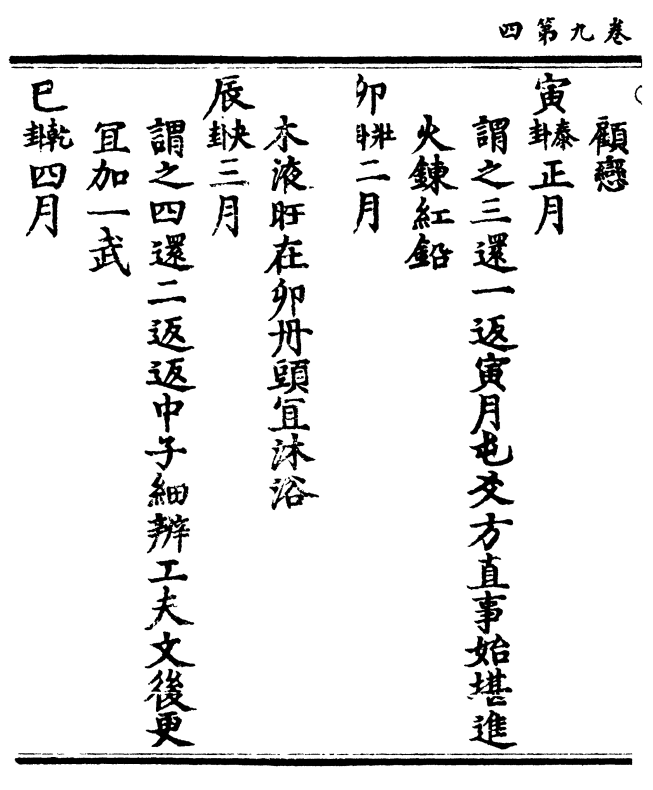 卷九第四
顧戀
寅泰卦正月
謂之三還一返寅月屯爻方直事始堪進
火鍊紅鉛
卯壯卦二月
木液旺在卯丹頭冝沐浴
辰夬卦三月
謂之四還二返返中子細辨工夫文後更
冝加一武
巳乾卦四月